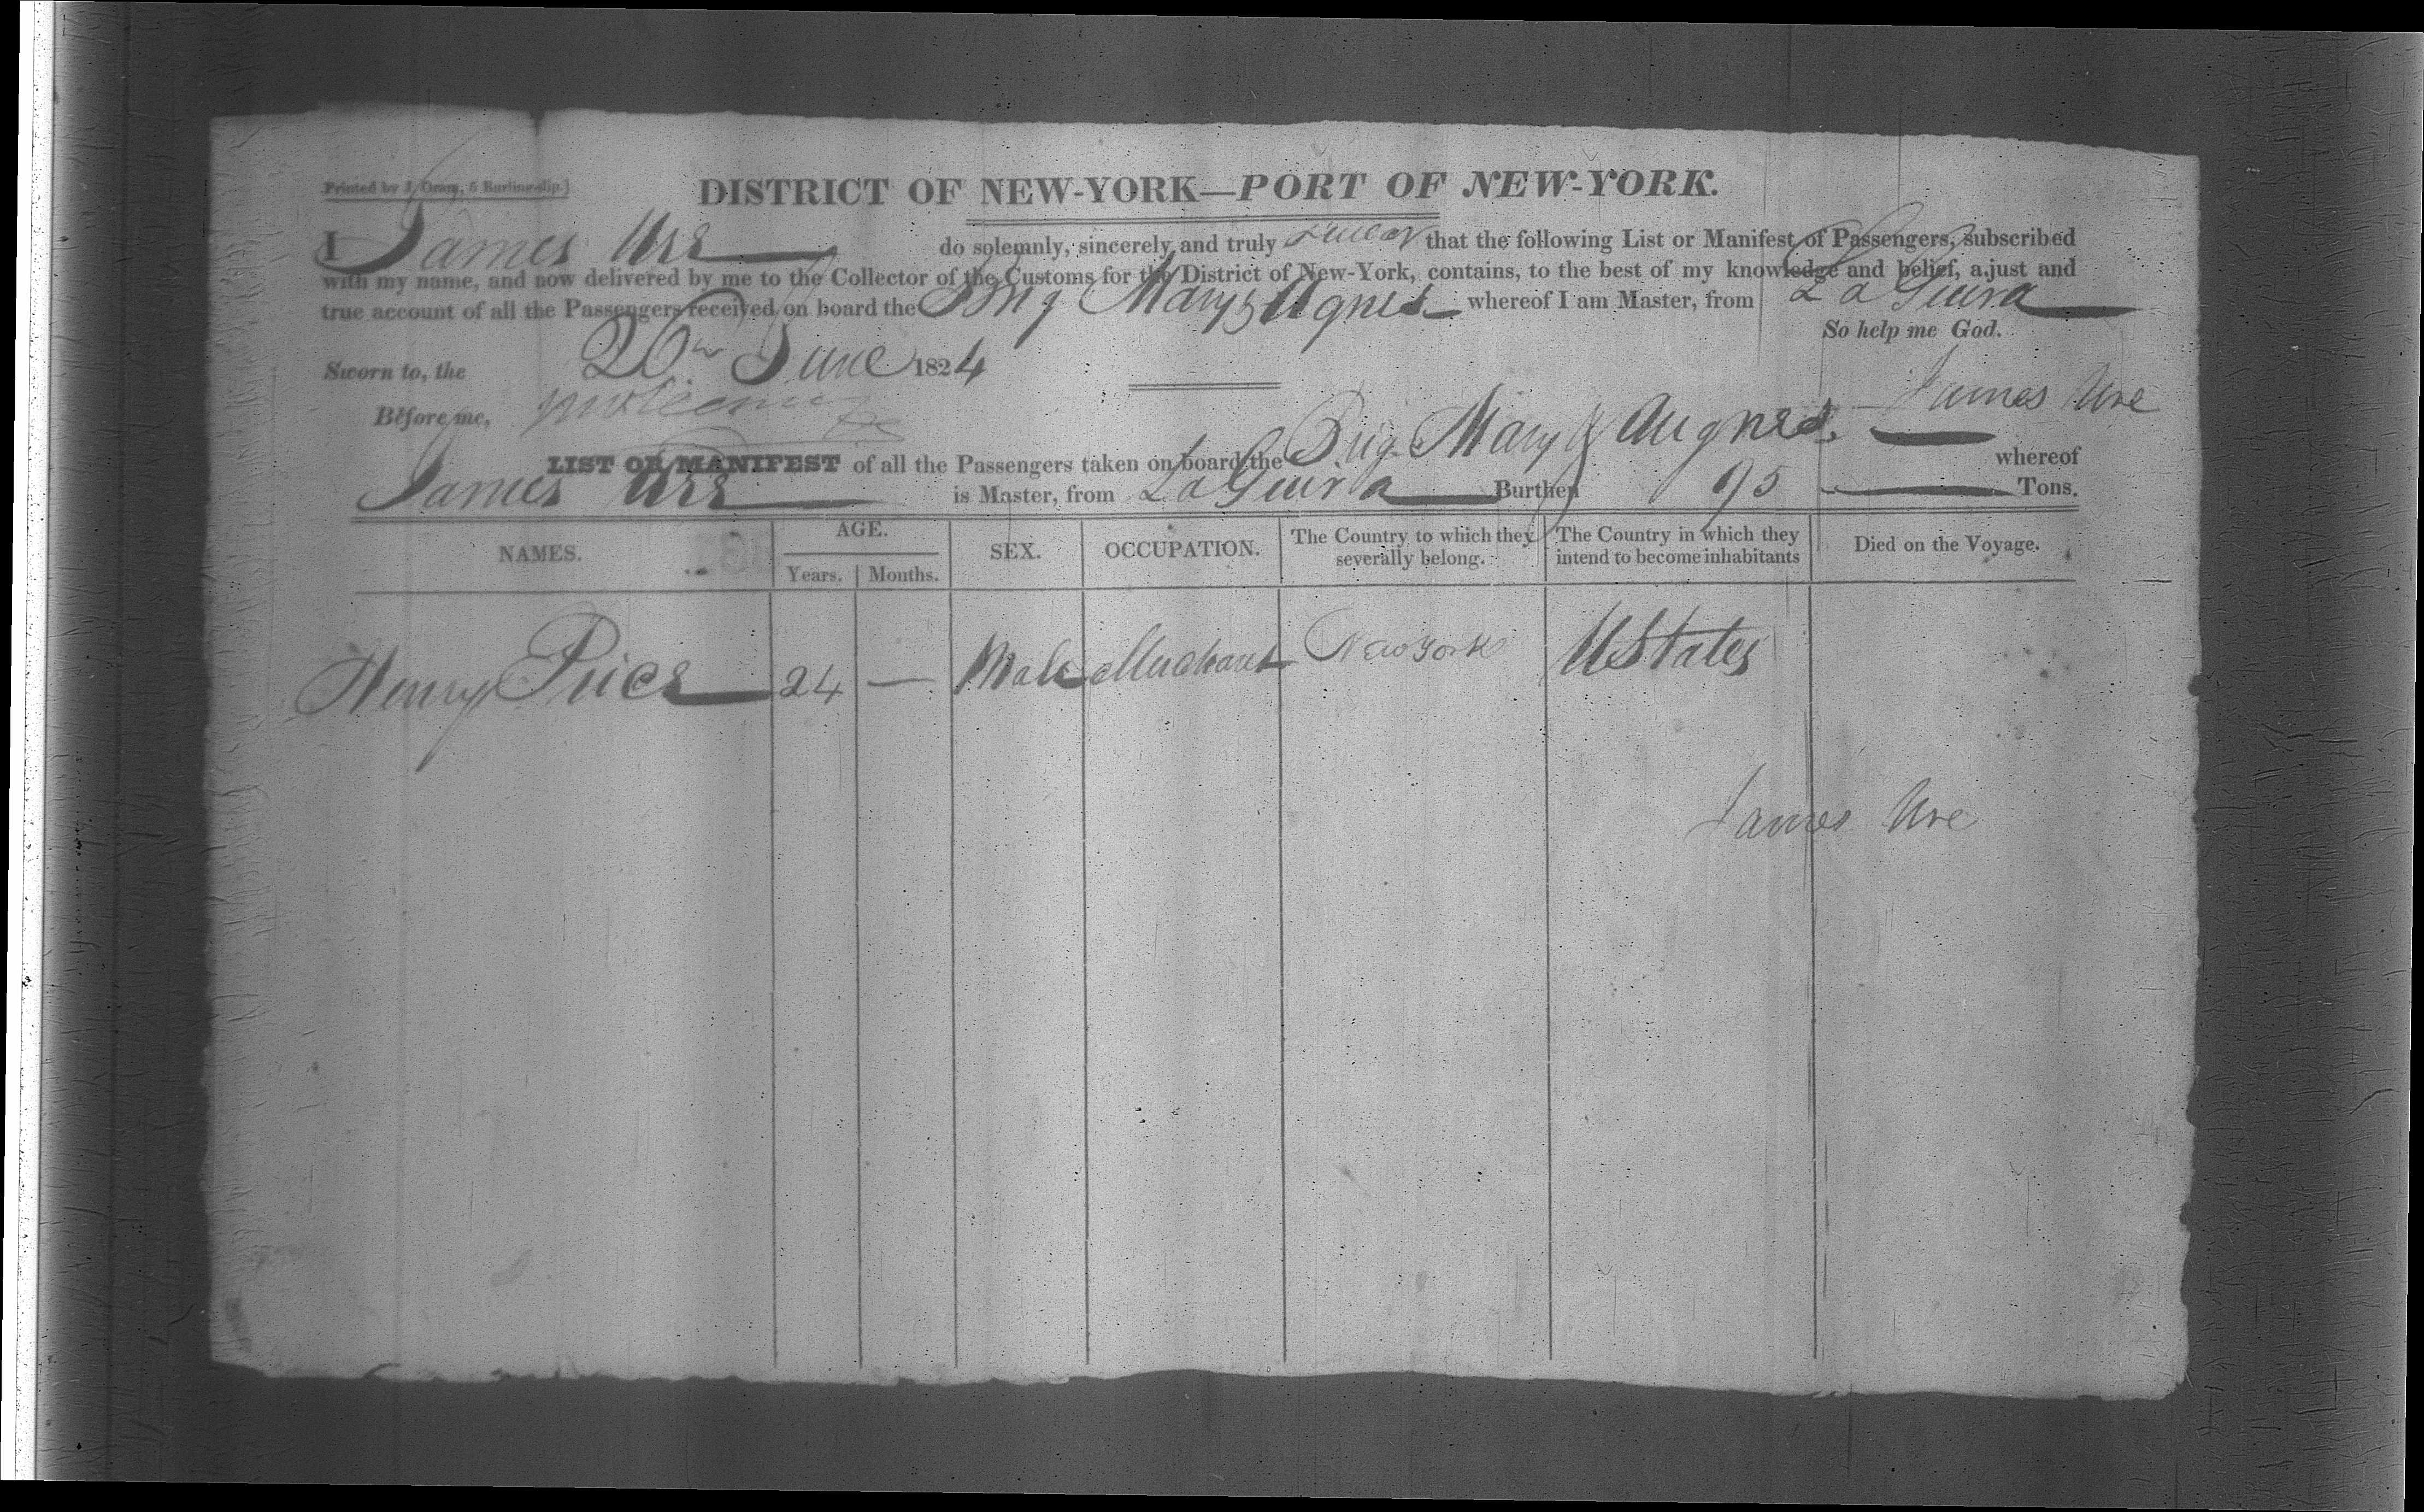 Printed by J. Oram, 5 Burling-slip.]
DISTRICT OF NEW-YORK—PORT OF NEW-YORK.
I James Ure do solemnly, sincerely and truly swear that the following List or Manifest of Passengers, subscribed
with my name, and now delivered by me to the Collector of the Customs for the District of New-York, contains, to the best of my knowledge and belief, a just and
true account of all the Passengers received on board the Brig Mary & Agnes whereof I am Master, from La Guira
So help me God.
Sworn to, the 26th June 1824
James Ure
Before me,
LIST OR MANIFEST of all the Passengers taken on board the Brig Mary & Augnes. whereof
James Ure is Master, from La Guira Burthen 195 Tons.
NAMES. AGE. Years. Months. SEX. OCCUPATION. The Country to which they severally belong. The Country in which they intend to become inhabitants Died on the Voyage.
Henry Price 24 — Male Merchant New York U States
James Ure